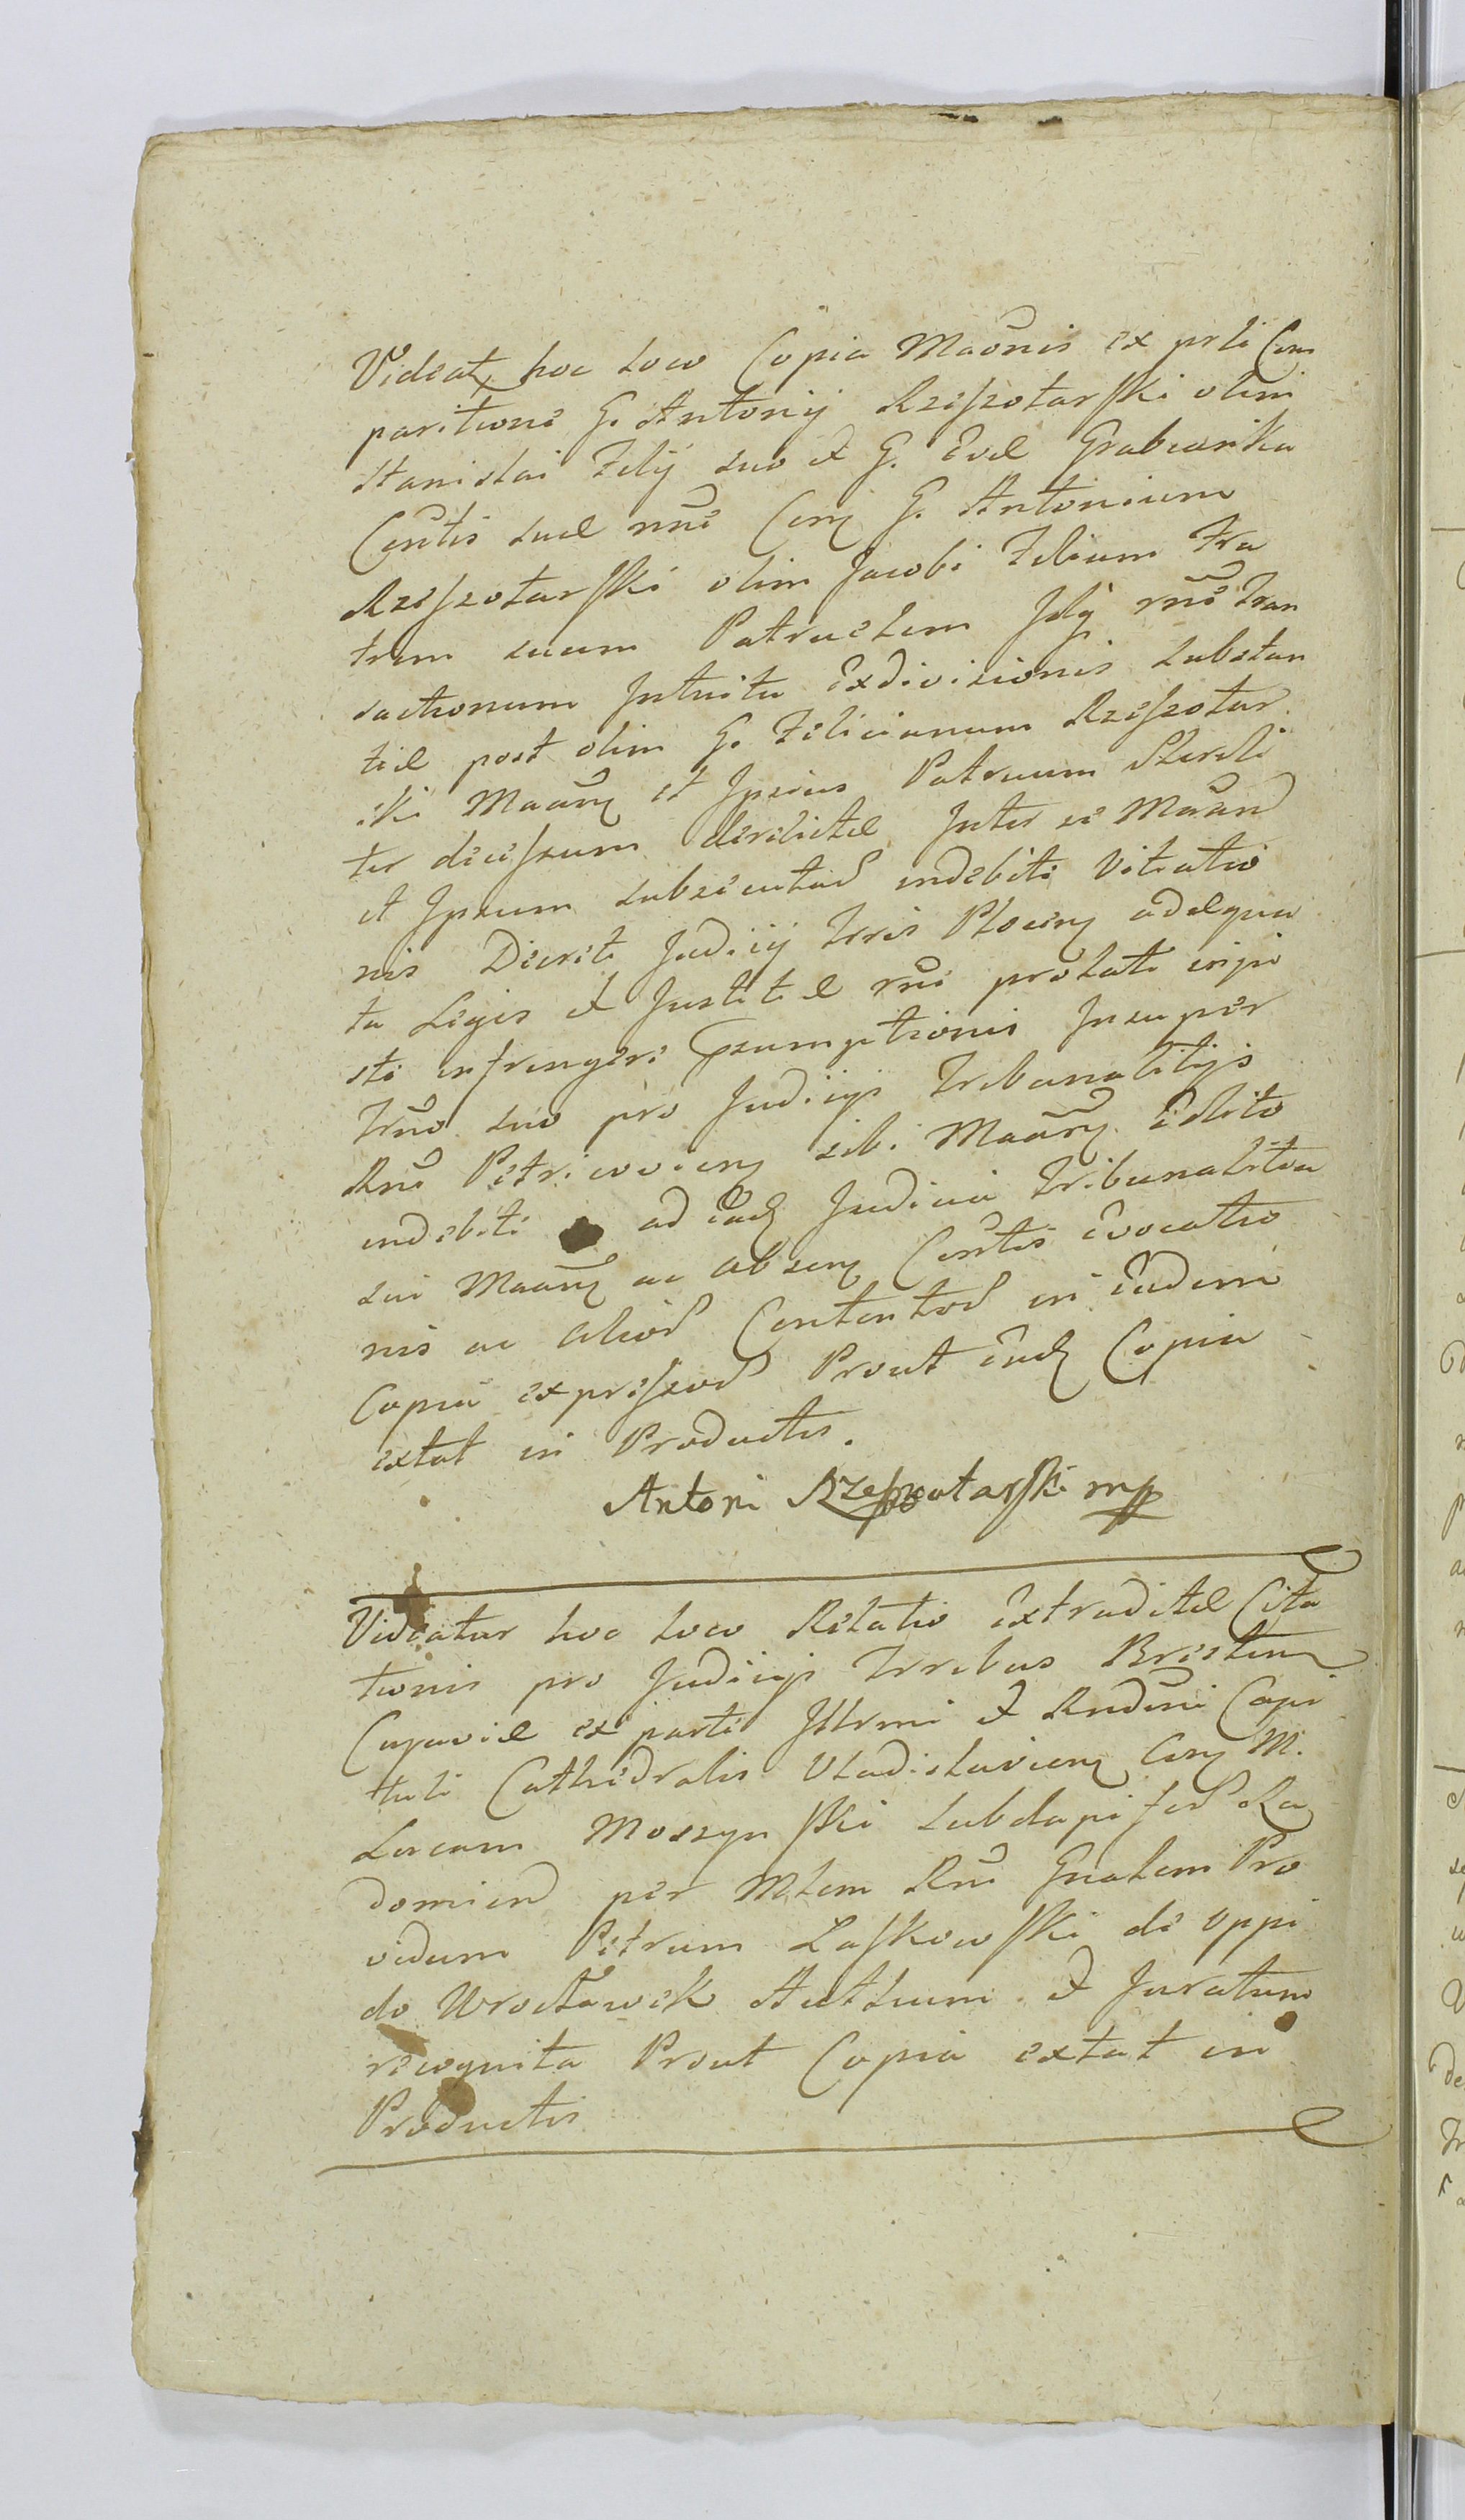 Videat hoc loco Copia Maõnis ex prti Com
paritione G. Antonij Rzeszotarski olim
Stanislai Filij suo et G. Evæ Grabowska
Contis suæ nnõe Con G. Antonium
Rzeszotarski olim Jacobi Filium Fra
trem suum Patruelem
sactionum Intuitu Exdivisionis Substan
tiæ post olim G. Felicianum Rzeszotar
ski Maan et Ipsius Patruum Sterili
ter decessum derelictæ Inter se
et Ipsum indebiti Vitatio
nis Decreti Judicij Trris Plocen adæqua
ta Legis et Justitiæ rnõe prolati
sti infringere Præsumptionis Insuper
Trño suo pro Judicijs Tribunalitijs
Rni Petricovien sibi Maan Edito
indebiti ad Judicia Tribunalitia
sui Maan ac absen Contis Evocatio
nis ac alior Contentor in Eadem
Copia expressor Prout Copia
extat in Productis.
Antoni Rzeszotarski mp
Videatur hoc loco Relatio Extraditæ Cita
tionis pro Judicijs Trribus Bresten
Cujaviæ ex parte Illrmi et Rndmi Capi
tuli Cathedralis Vladislavien Con M.
Lucam Moszynski Subdapifer Ra
domien per Mlem Rni Gnalem Pro
vidum Petrum Laskowski de Oppi
do Wrocławek Authum et Juratum
recognita Prout Copia extat in
Productis